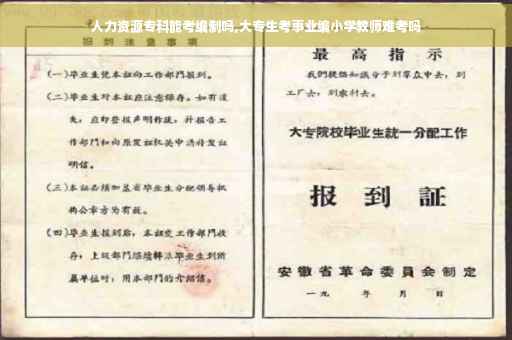 人力资源专科能考编制吗,大专生考事业编小学教师难考吗
报到注意事项
(一)毕业生凭本证向工作部门报到。
(二)毕业生对本证应注意保存。如有遗
失,应即登报声明作废,并报告工
作部门和向原发证机关申请补发证
明信。
(三)本证必须加盖省毕业生分配领导机
构公章方为有效。
(四)毕业生报到后,本证交工作部门收
存;上级部门继续转派毕业生到所
属单位时,用本部门的介绍信。
最高指示
我们提倡知识分子到群众中去,到
工厂去,到农村去。
大专院校毕业生统一分配工作
报到证
安徽省革命委员会制定
一九 年 月 日